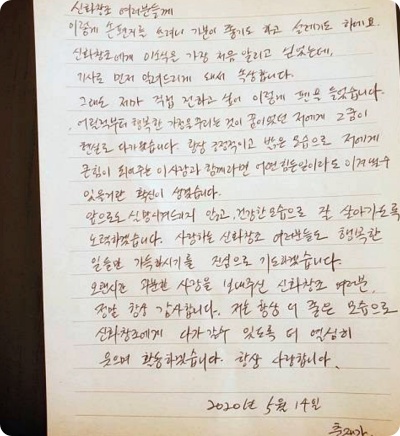 신화창조 여러분들께
이렇게 손편지를 쓰려니 기분이 좋기도 하고 설레기도 하네요.
신화창조에게 이 소식을 가장 처음 알리고 싶었는데,
기사로 먼저 알려드리게 돼서 속상합니다.
그래도 제가 직접 전하고 싶어 이렇게 펜을 들었습니다.
어릴적부터 행복한 가정을 꾸리는 것이 꿈이었던 저에게 그 꿈이
현실로 다가왔습니다. 항상 긍정적이고 밝은 모습으로 저에게
큰 힘이 되어주는 이 사람과 함께라면 어떤 힘든일이라도 이겨낼수
있을거란 확신이 생겼습니다.
앞으로도 실망시켜드리지 않고, 건강한 모습으로 잘 살아가도록
노력하겠습니다. 사랑하는 신화창조 여러분들도 행복한
일들만 가득하시기를 진심으로 기도하겠습니다.
오랜시간 과분한 사랑을 보내주신 신화창조 여러분,
정말 항상 감사합니다. 저는 항상 더 좋은 모습으로
신화창조에게 다가갈수 있도록 더 열심히
웃으며 활동하겠습니다. 항상 사랑합니다.
2020년 5월 14일